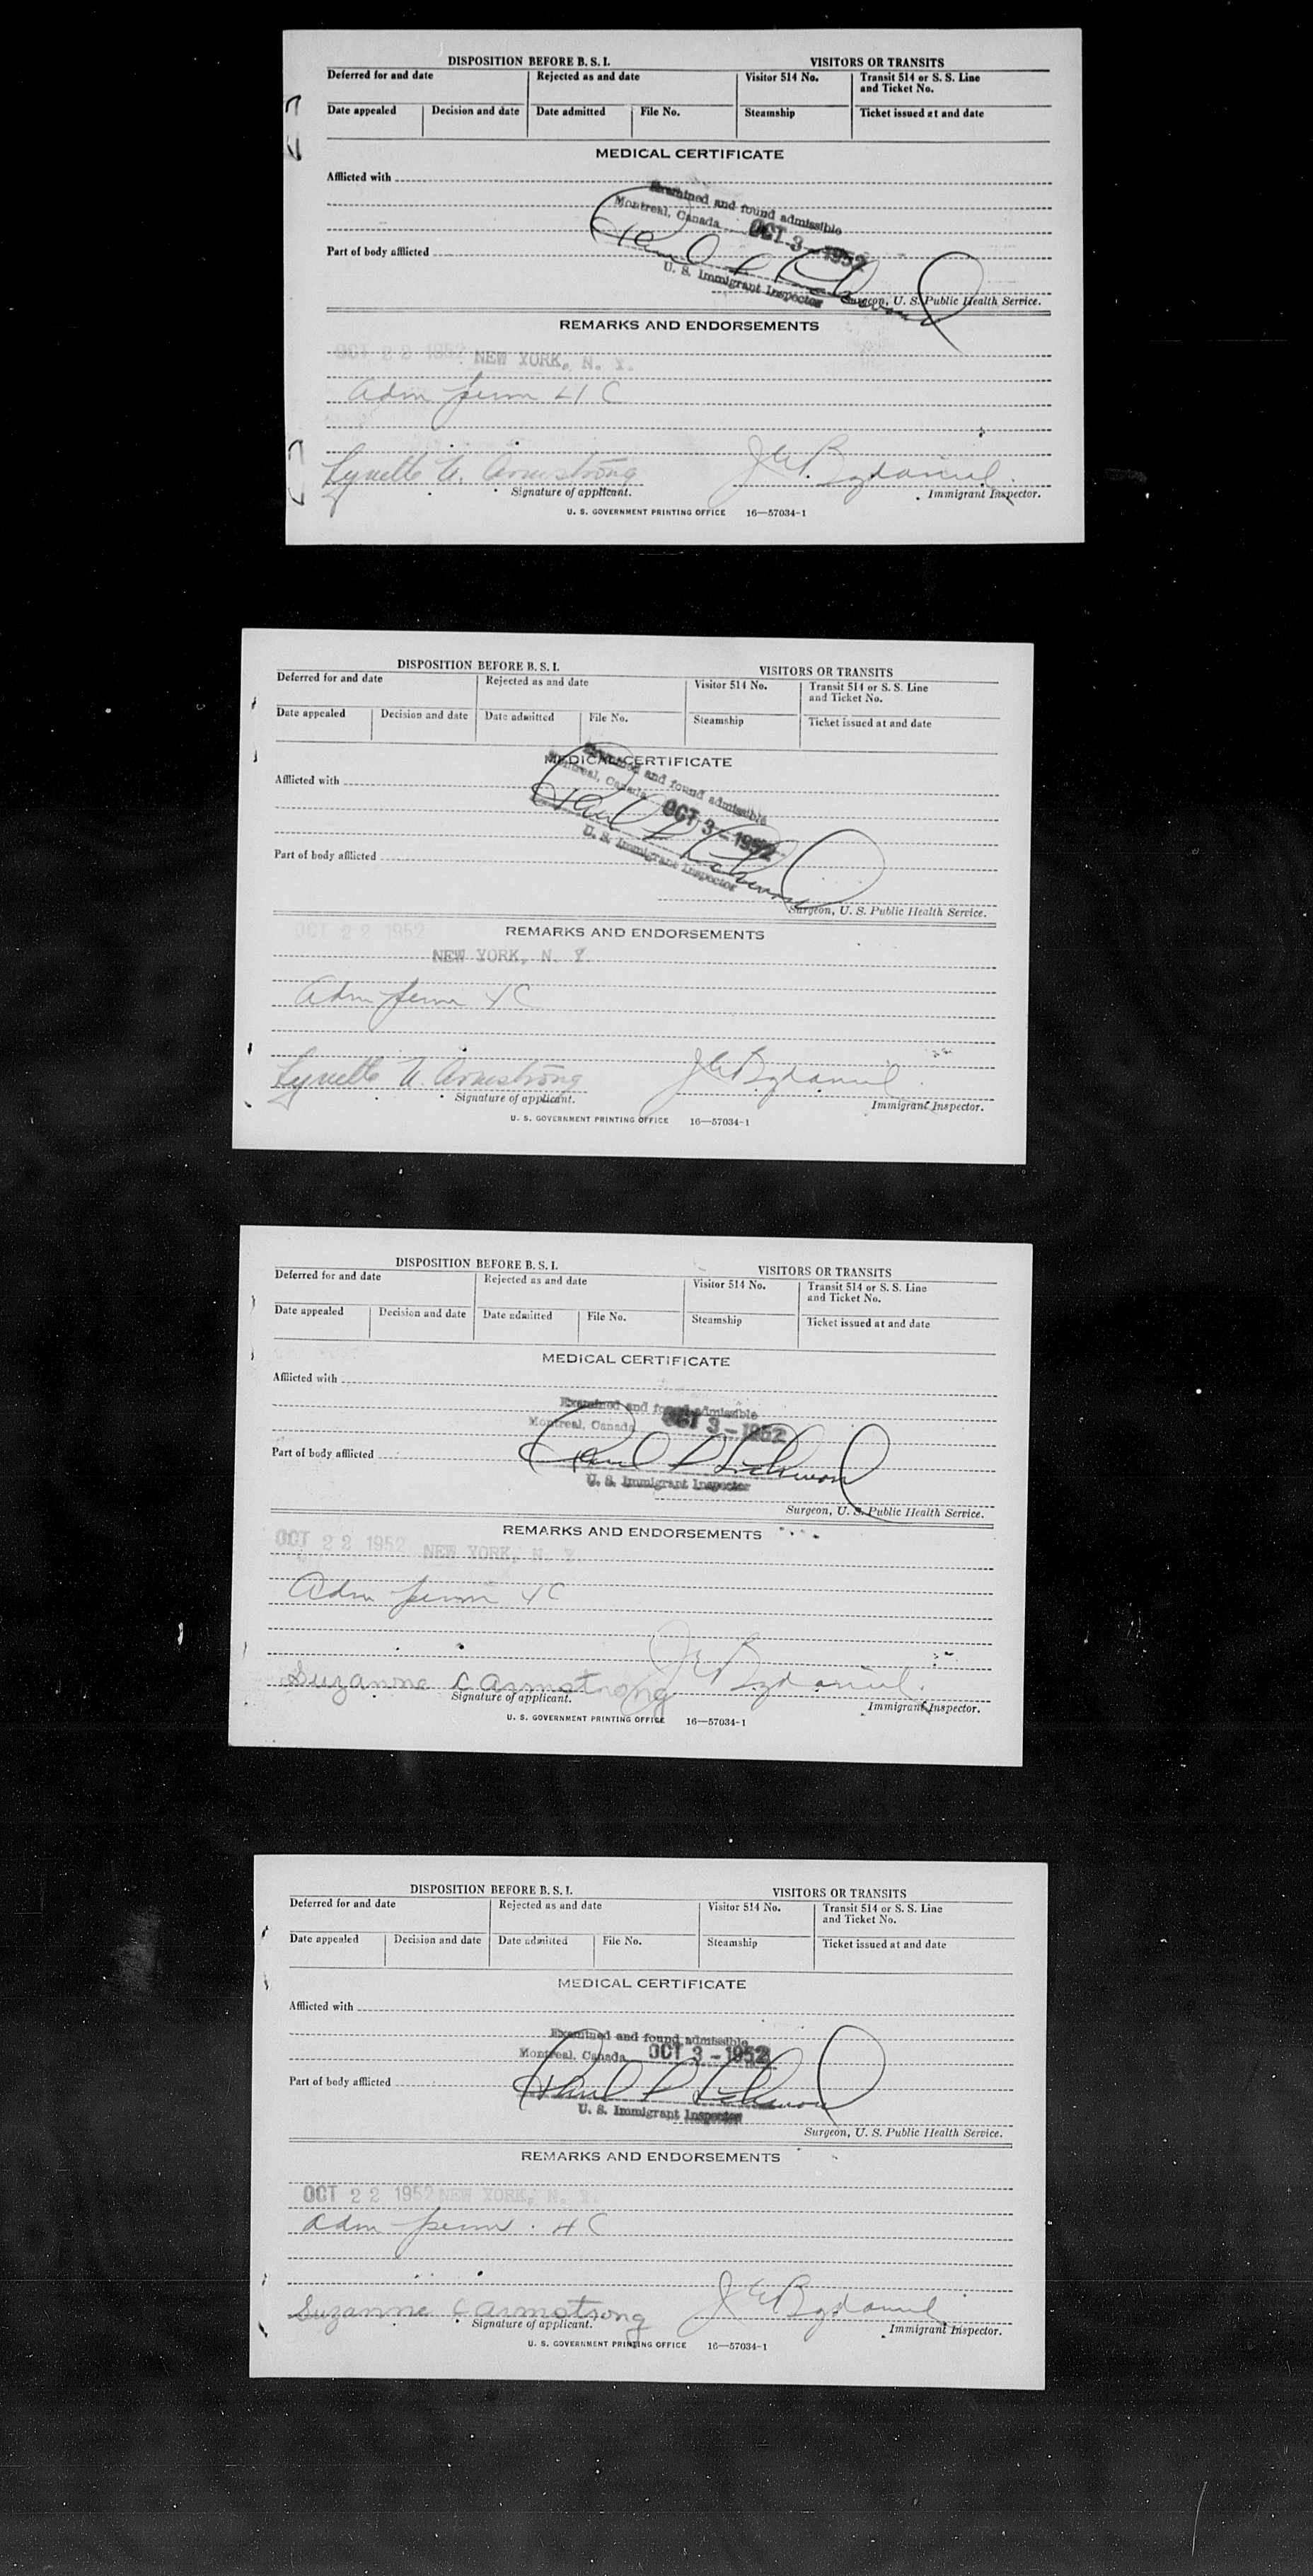 DISPOSITION BEFORE B. S. I. VISITORS OR TRANSITS
Deferred for and date Rejected as and date Visitor 514 No. Transit 514 or S. S. Line and Ticket No.
Date appealed Decision and date Date admitted File No. Steamship Ticket issued at and date
MEDICAL CERTIFICATE
Afflicted with
Examined and found admissible
Montreal, Canada OCT 3 - 1952
Part of body afflicted
U. S. Immigrant Inspector
Surgeon, U. S. Public Health Service.
REMARKS AND ENDORSEMENTS
OCT 22 1952 NEW YORK, N. Y.
Adm perm 4 C
Lynette A. Armstrong
Signature of applicant. Immigrant Inspector.
U. S. GOVERNMENT PRINTING OFFICE 16—57034-1
DISPOSITION BEFORE B. S. I. VISITORS OR TRANSITS
Deferred for and date Rejected as and date Visitor 514 No. Transit 514 or S. S. Line and Ticket No.
Date appealed Decision and date Date admitted File No. Steamship Ticket issued at and date
MEDICAL CERTIFICATE
Examined and found admissible
Afflicted with
Montreal, Canada OCT 3 - 1952
U. S. Immigrant Inspector
Part of body afflicted
Surgeon, U. S. Public Health Service.
OCT 22 1952 REMARKS AND ENDORSEMENTS
NEW YORK, N. Y.
Adm perm 4 C
Lynette A. Armstrong
Signature of applicant. Immigrant Inspector.
U. S. GOVERNMENT PRINTING OFFICE 16—57034-1
DISPOSITION BEFORE B. S. I. VISITORS OR TRANSITS
Deferred for and date Rejected as and date Visitor 514 No. Transit 514 or S. S. Line and Ticket No.
Date appealed Decision and date Date admitted File No. Steamship Ticket issued at and date
MEDICAL CERTIFICATE
Afflicted with
Examined and found admissible
Montreal, Canada OCT 3 - 1952
Part of body afflicted
U. S. Immigrant Inspector
Surgeon, U. S. Public Health Service.
REMARKS AND ENDORSEMENTS
OCT 22 1952 NEW YORK, N. Y.
Adm perm 4 C
Suzanne C Armstrong
Signature of applicant. Immigrant Inspector.
U. S. GOVERNMENT PRINTING OFFICE 16—57034-1
DISPOSITION BEFORE B. S. I. VISITORS OR TRANSITS
Deferred for and date Rejected as and date Visitor 514 No. Transit 514 or S. S. Line and Ticket No.
Date appealed Decision and date Date admitted File No. Steamship Ticket issued at and date
MEDICAL CERTIFICATE
Afflicted with
Examined and found admissible
Montreal, Canada OCT 3 - 1952
Part of body afflicted
U. S. Immigrant Inspector
Surgeon, U. S. Public Health Service.
REMARKS AND ENDORSEMENTS
OCT 22 1952 NEW YORK, N. Y.
Adm perm. 4 C
Suzanne C Armstrong
Signature of applicant. Immigrant Inspector.
U. S. GOVERNMENT PRINTING OFFICE 16—57034-1